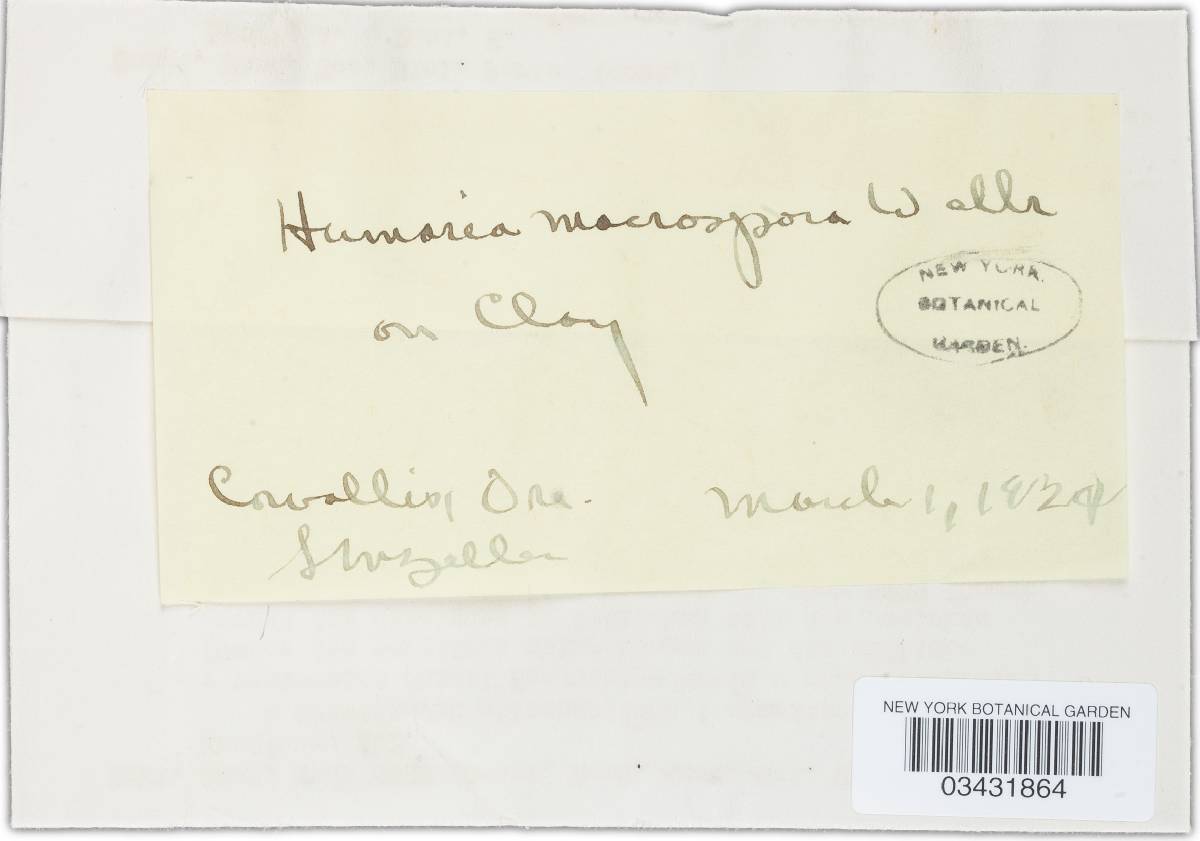 Humaria macrospora Wallr
on Clay
NEW YORK
BOTANICAL
GARDEN.
Corvallis, Ore.
March 1, 1924
SMZeller
NEW YORK BOTANICAL GARDEN
03431864